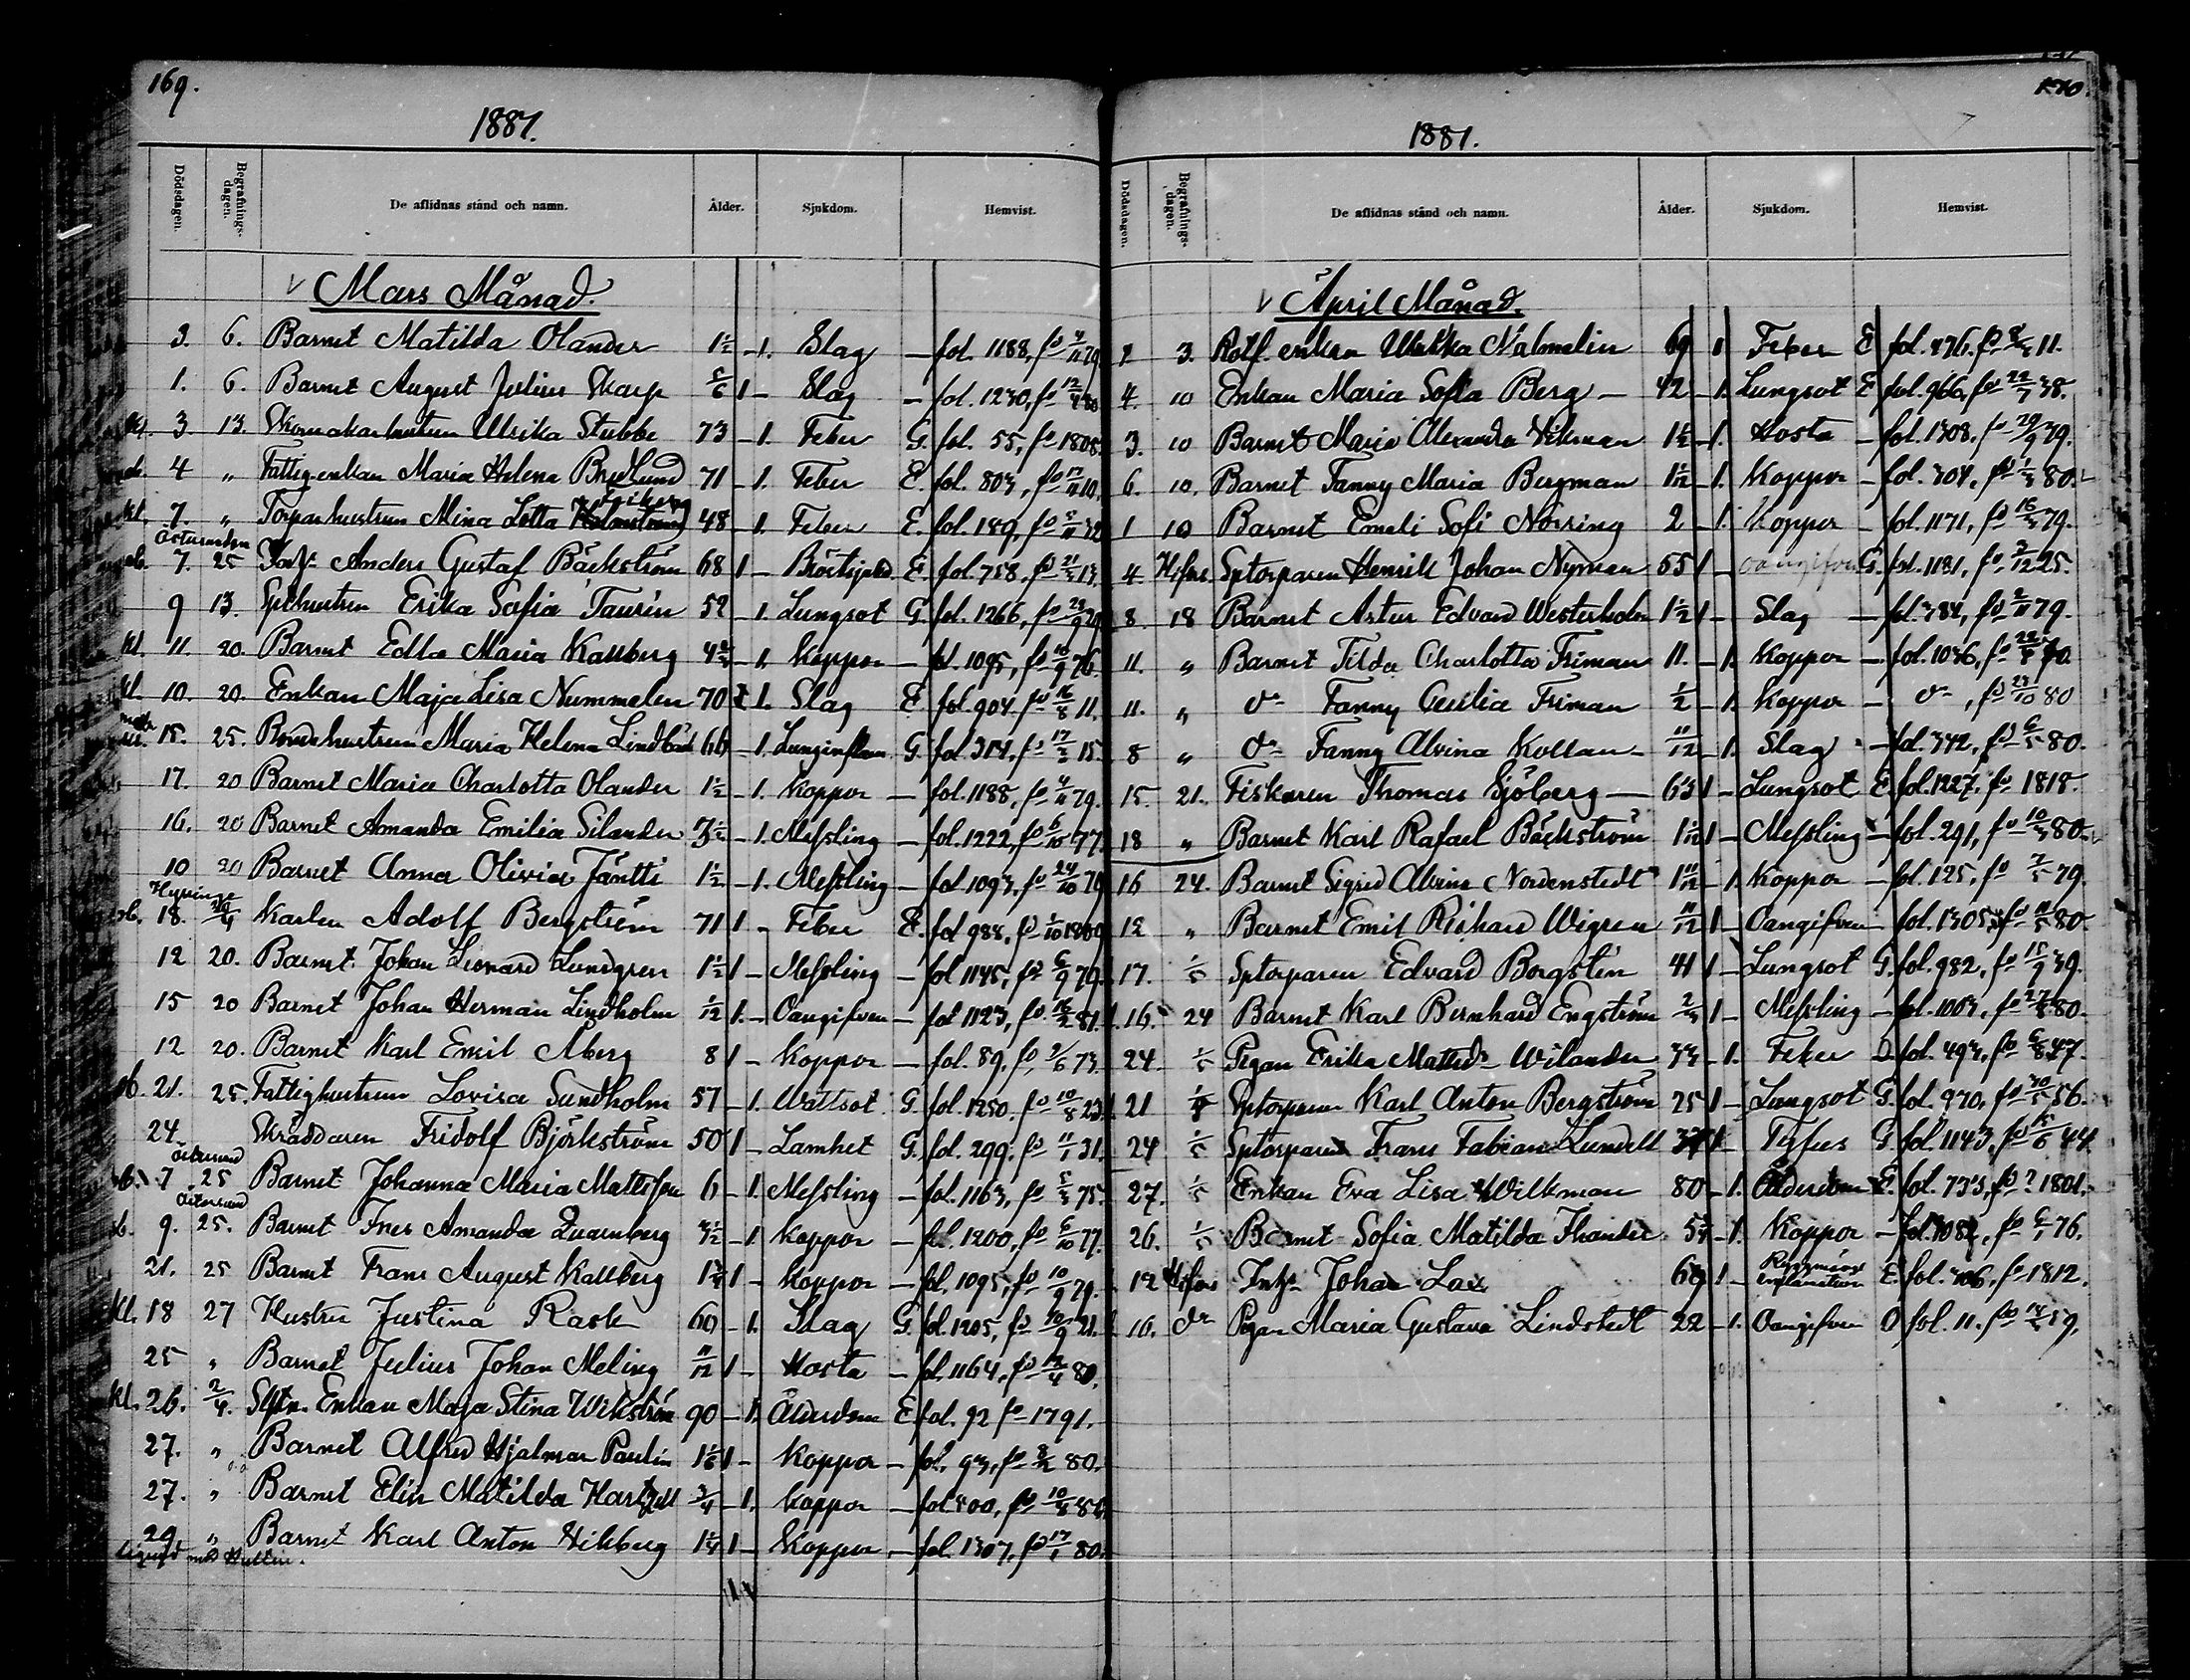 169.
1881.
Dödsdagen. Begrafnings-dagen. De aflidnas stånd och namn. Ålder. Sjukdom. Hemvist.
Mars Månad.
3. 6. Barnet Matilda Olander 1½ – 1. Slag – fol. 1188, fö 4/11 79
1. 6. Barnet August Julius Skarp 5/6 1 – Slag – fol. 1230, fö 12/4 80
3. 13. Skomakarhustrun Ulrika Stubbe 73 – 1. Feber G. fol. 55, fö 1808.
4 " Fattig-enkan Maria Helena Bredlund 71 – 1. Feber E. fol. 803, fö 17/11 10.
kl. 7. " Torparhustrun Mina Lotta 48 – 1. Feber E. fol. 189, fö 5/11 32
Östersunden
7. 25 Anders Gustaf Bäckström 68 1 – Bröstsjukd. E. fol. 758, fö 21/3 13.
9 13. Spthustrun Erika Sofia Taurén 52 – 1. Lungsot G. fol. 1266, fö 29/9 29
kl. 11. 20. Barnet Edla Maria Kallberg 4¾ – 1. Koppor – fol. 1095, fö 10/9 76.
kl. 10. 20. Enkan Maja Lisa Nummelin 70 1. Slag E fol. 904. fö 16/8 11.
15. 25. Bondehustrun Maria Helena Lindblad 66 – 1. Lunginflam. G. fol. 314, fö 17/2 15.
17. 20 Barnet Maria Charlotta Olander 1½ – 1. Koppor – fol. 1188, fö 4/11 79.
16. 20 Barnet Amanda Emilia Silander 3½ – 1. Messling – fol. 1222, fö 6/10 77.
10 20 Barnet Anna Olivia Jäntti 1½ – 1. Messling – fol. 1093, fö 24/10 79
18. Karlen Adolf Bergström 71 1 – Feber E. fol. 988, fö 1/10 1809
12 20. Barnet Johan Leonard Lundgren 1½ 1 – Messling – fol. 1145, fö 6/9 79.
15 20 Barnet Johan Herman Lindholm 1/12 1. – Oangifven – fol. 1123, fö 16/2 81.
12 20. Barnet Karl Emil Åberg 8 1 – Koppor – fol. 89, fö 2/6 73.
sb. 21. 25. Fattighustrun Lovisa Sundholm 57 – 1. Wattsot G. fol. 1250. fö 10/8 23.
24. Skräddaren Fridolf Björkström 50 1 – Lamhet G. fol. 299. fö 11/1 31.
Östersund
7 25 Barnet Johanna Maria Mattsson 6 – 1. Messling – fol. 1163, fö 5/3 75.
Östersund
9. 25. Barnet Ines Amanda Quarnberg 3½ – 1. Koppor – fol. 1200, fö 6/10 77.
21. 25 Barnet Frans August Kallberg 1½ 1 – Koppor – fol. 1095, fö 10/9 79.
kl. 18 27 Hustru Justina Rask 60 – 1. Slag G. fol. 1205, fö 30/9 21.
25 " Barnet Julius Johan Meling 11/12 1 – Hosta – fol. 1164, fö 13/4 80.
kl. 26. 2/4. Enkan Maja Stina Wikström 90 – 1. Ålderdom E. fol. 92 fö 1791.
27. " Barnet Alfred Hjalmar Paulin 1 1/6 1 – Koppor – fol. 93, fö 8/2 80.
27. " Barnet Elin Matilda Hartzell 3/4 – 1. Koppor – fol. 500, fö 10/4 80.
29 " Barnet Karl Anton Vikberg 1¼ 1 – Koppor – fol. 1307, fö 17/1 80.
170.
1881.
Dödsdagen. Begrafnings-dagen. De aflidnas stånd och namn. Ålder. Sjukdom. Hemvist.
April Månad.
3. Rotf. enkan Ulrika Malmelin 69 1 Feber E fol. 876. 11.
4. 10 Enkan Maria Sofia Berg – 42 – 1. Lungsot E fol. 966, fö 22/7 38.
3. 10 Barnet Maria Alexandra Vikman 1½ – 1. Hosta – fol. 1308, fö 29/9 79.
6. 10. Barnet Fanny Maria Bergman 1 1/12 – 1. Koppor – fol. 304, fö 1/3 80.
1 10 Barnet Emeli Sofi Norring 2 – 1. Koppor – fol. 1171, fö 16/3 79.
4 H:fors. Sptorparen Henrik Johan Nyman 55 1 – oangifven G. fol. 1181, fö 3/12 25.
8. 18 Barnet Artur Edvard Westerholm 1½ 1 – Slag – fol. 384, fö 2/11 79.
11. " Barnet Tilda Charlotta Friman 11. – 1. Koppor – fol. 1036, fö 22/5 70.
11. " do Fanny Cecilia Friman ½ – 1. Koppor – do, fö 23/10 80
8 " do Fanny Alvina Kollan – 11/12 – 1. Slag – fol. 342, fö 6/5 80.
15. 21. Fiskaren Thomas Sjöberg – 63 1 – Lungsot E fol. 1227, fö 1818.
18 " Barnet Karl Rafael Bäckström 1 1/12 1 – Messling – fol. 291, fö 10/3 80.
16 24. Barnet Sigrid Alvina Nordenstedt 1 11/12 – 1. Koppor – fol. 125, fö 7/5 79.
12 " Barnet Emil Rikhard Wigren 11/12 1 – Oangifven – fol. 1305, fö 11/5 80.
17. 1/5 Sptorparen Edvard Borgstén 41 1 – Lungsot G. fol. 982, fö 15/9 39.
16. 24 Barnet Karl Bernhard Engström 2/3 1 – Messling – fol. 1003, fö 27/8 80.
24. 1/5 Pigan Erika Matilda Wilander 33 – 1. Feber O. fol. 493, fö 6/8 47.
21 1/5 Sptorparen Karl Anton Bergström 25 1 – Lungsot G. fol. 970, fö 30/5 56.
24 1/5 Sptorparen Frans Fabian Lundell 37 1 – Tyfus G fol. 1143, fö 15/6 44.
27. 1/5 Enkan Eva Lisa Wilkman 80 – 1. Ålderdom E. fol. 733, fö ? 1801.
26. 1/5 Barnet Sofia Matilda Ihander 5¼ – 1. Koppor – fol. 1082, fö 6/1 76.
12 H:fors Inhys Johan Lax 69 1 – Ryggmärgs inflamation E fol. 306, fö 1812.
16. do Pigan Maria Gustava Lindstedt 22 – 1. Oangifven O fol. 11. fö 14/3 59.